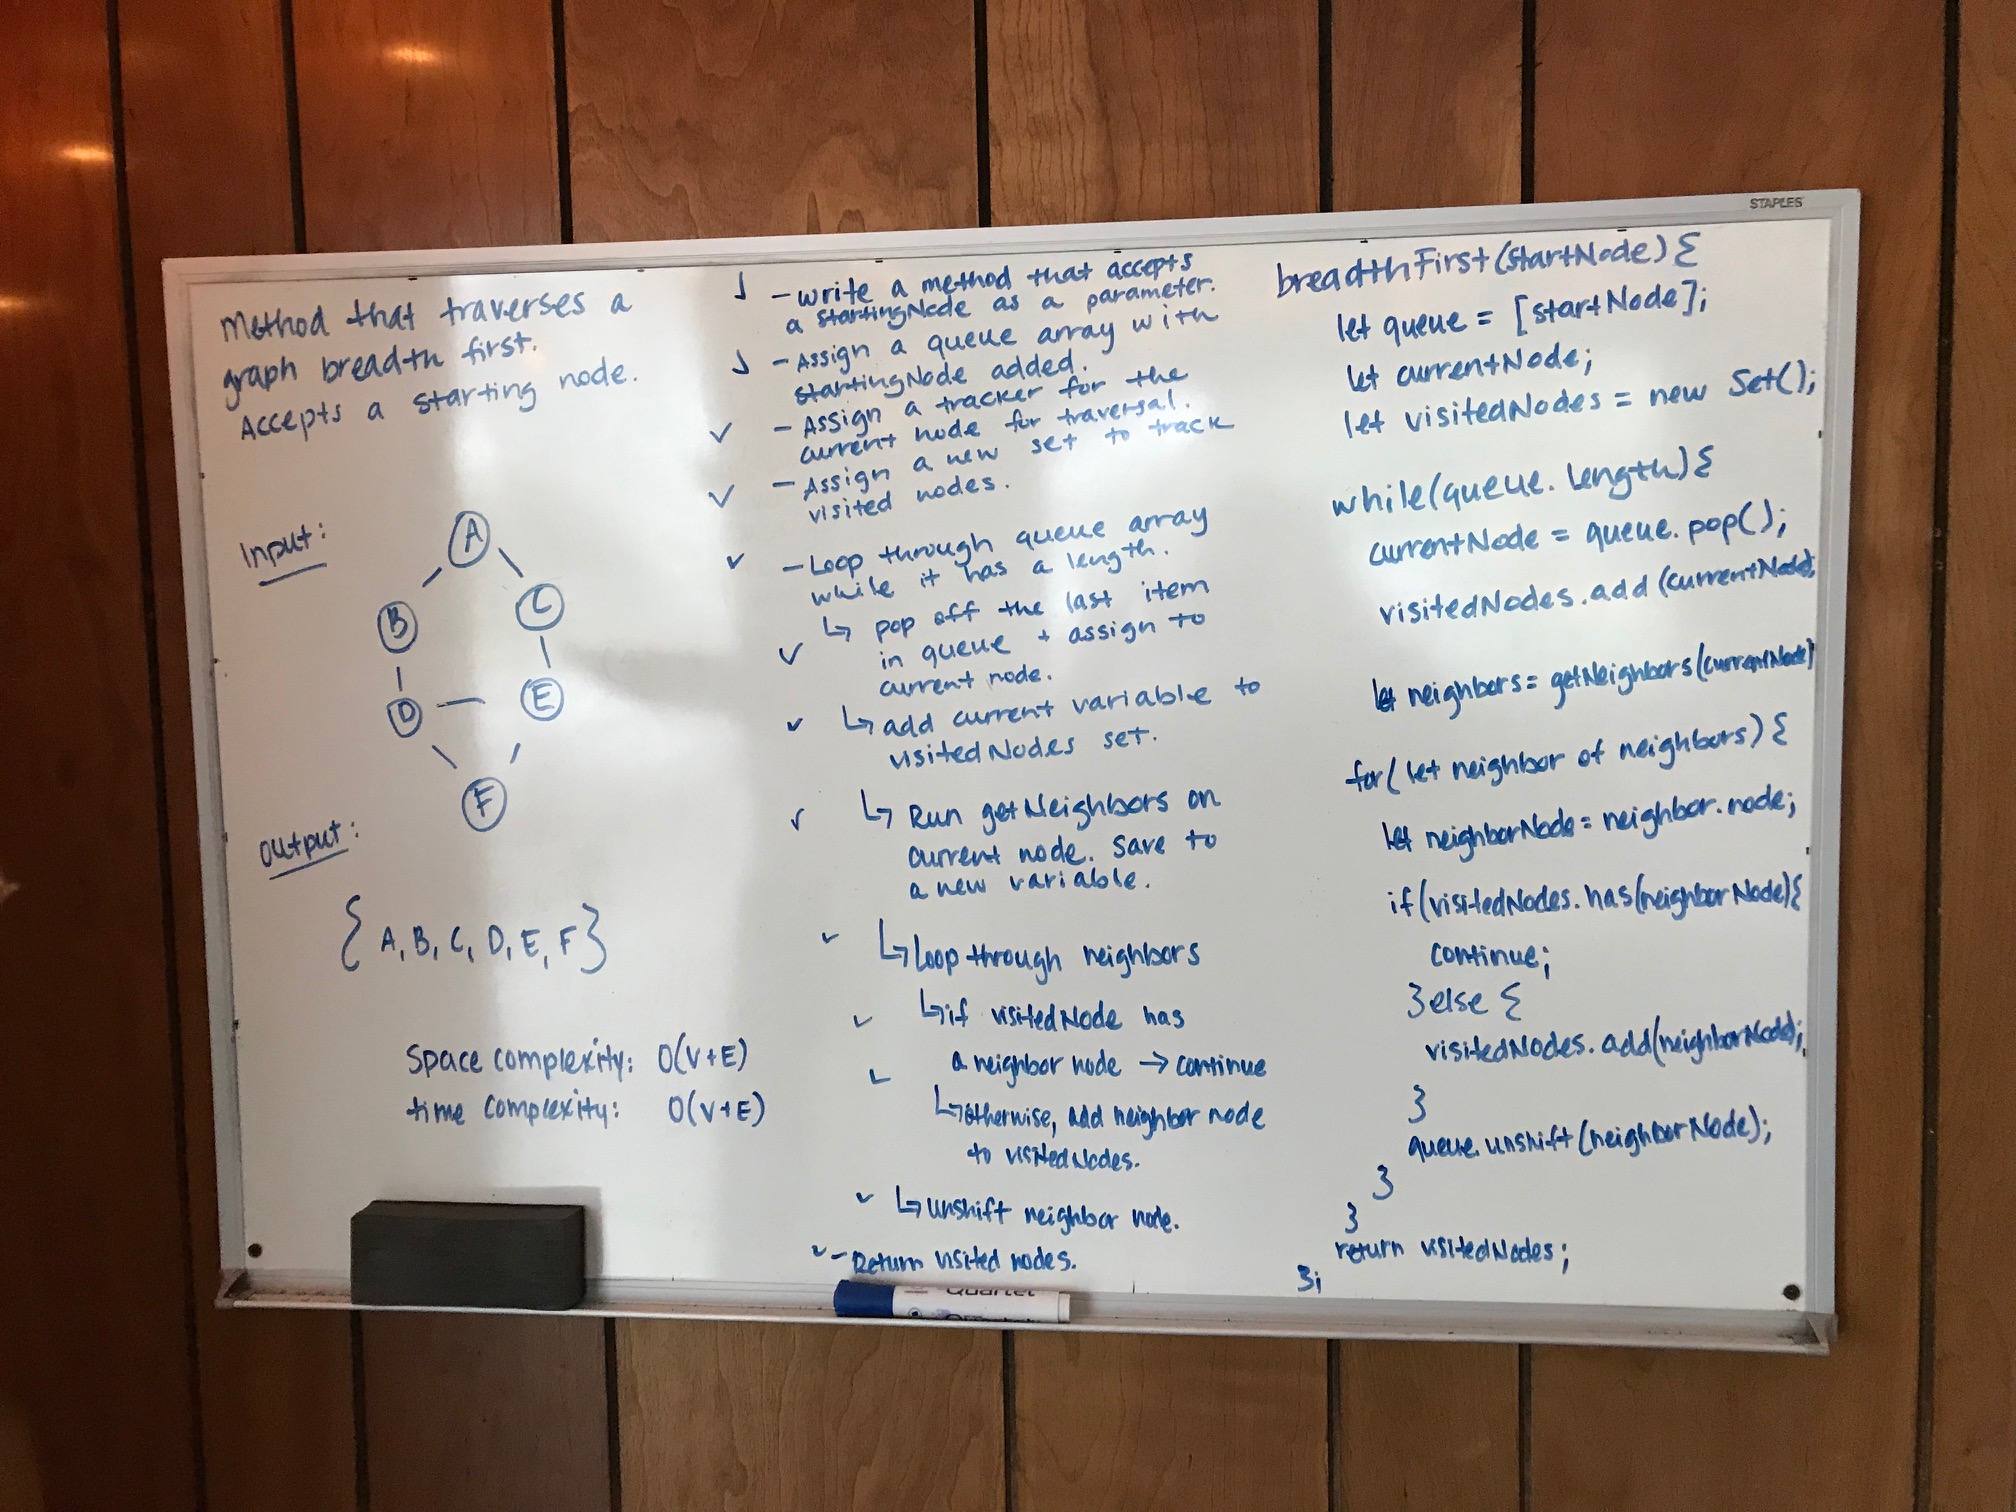 STAPLES
Method that traverses a
graph breadth first.
Accepts a starting node.
Input:
A
B
C
D
E
F
Output:
{ A, B, C, D, E, F }
Space complexity: O(V+E)
time complexity: O(V+E)
- write a method that accepts
a startingNode as a parameter.
- Assign a queue array with
startingNode added.
- Assign a tracker for the
current node for traversal.
- Assign a new set to track
visited nodes.
- Loop through queue array
while it has a length.
↳ pop off the last item
in queue + assign to
current node.
↳ add current variable to
visitedNodes set.
↳ Run getNeighbors on
current node. Save to
a new variable.
↳ Loop through neighbors
↳ if visitedNode has
a neighbor node → continue
↳ otherwise, add neighbor node
to visitedNodes.
↳ unshift neighbor node.
- Return visited nodes.
breadthFirst(startNode) {
let queue = [startNode];
let currentNode;
let visitedNodes = new Set();
while(queue.length) {
currentNode = queue.pop();
visitedNodes.add(currentNode);
let neighbors = getNeighbors(currentNode)
for( let neighbor of neighbors) {
let neighborNode = neighbor.node;
if(visitedNodes.has(neighborNode){
continue;
} else {
visitedNodes.add(neighborNode);
}
queue.unshift(neighborNode);
}
}
return visitedNodes;
};
Quartet